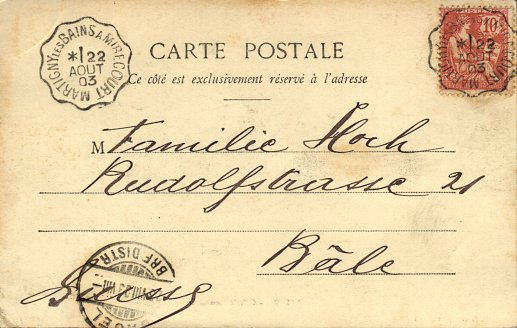 MARTIGNY LES BAINS A MIRECOURT
*1 22
AOUT
03
CARTE POSTALE
Ce côté est exclusivement réservé à l'adresse
10
*1 22
AOUT
03
M Familie Hoch
Rudolfstrasse 21
Bâle
Suisse
BRF. DISTR.
BASEL